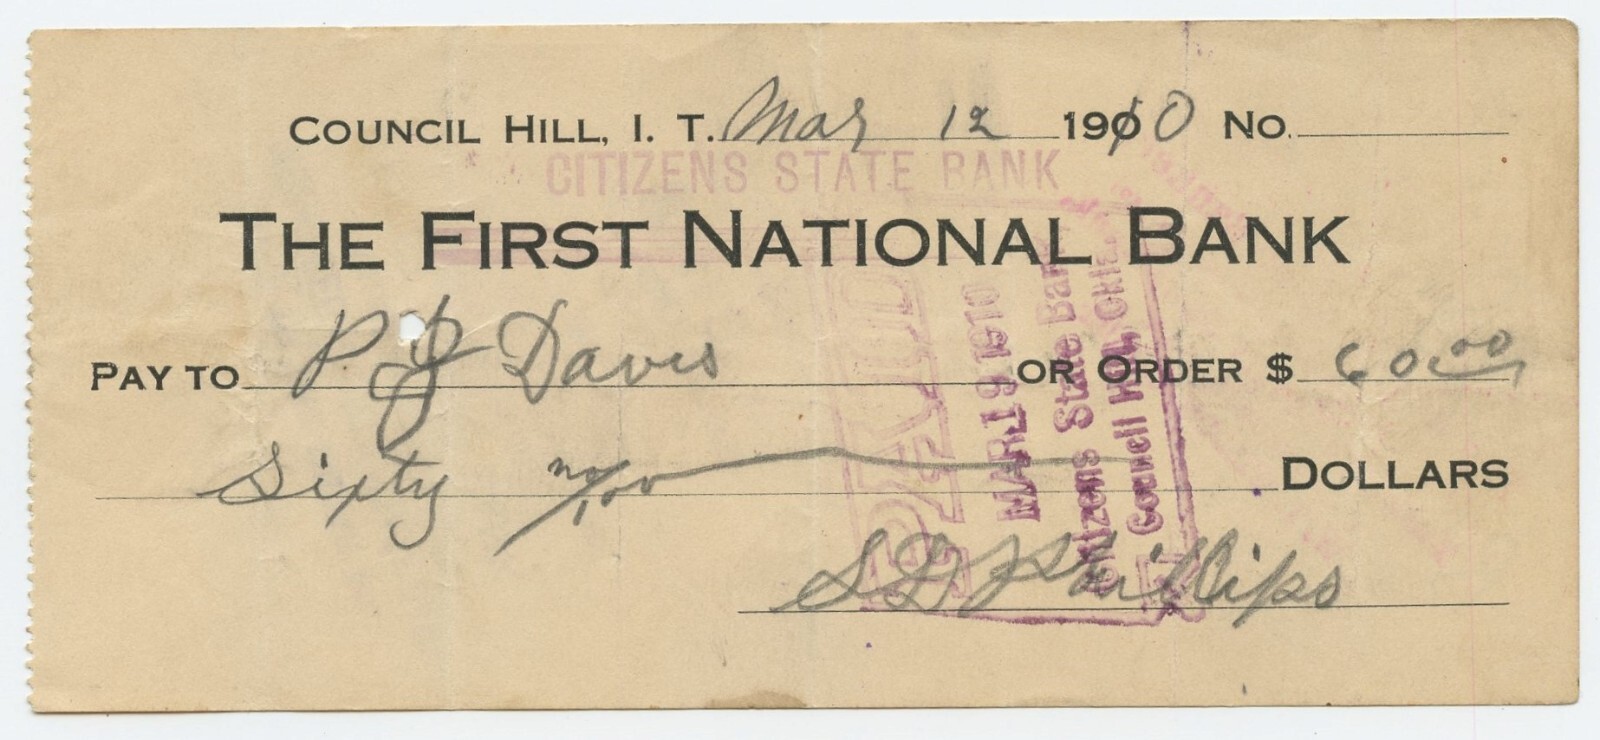 COUNCIL HILL, I. T. Mar 12 1910 No.
CITIZENS STATE BANK
THE FIRST NATIONAL BANK
PAY TO P J Davis OR ORDER $ 60.00
Sixty no/100 DOLLARS
S D Phillips
PAID
MAR 19 1910
Citizens State Bank
Council Hill, Okla.